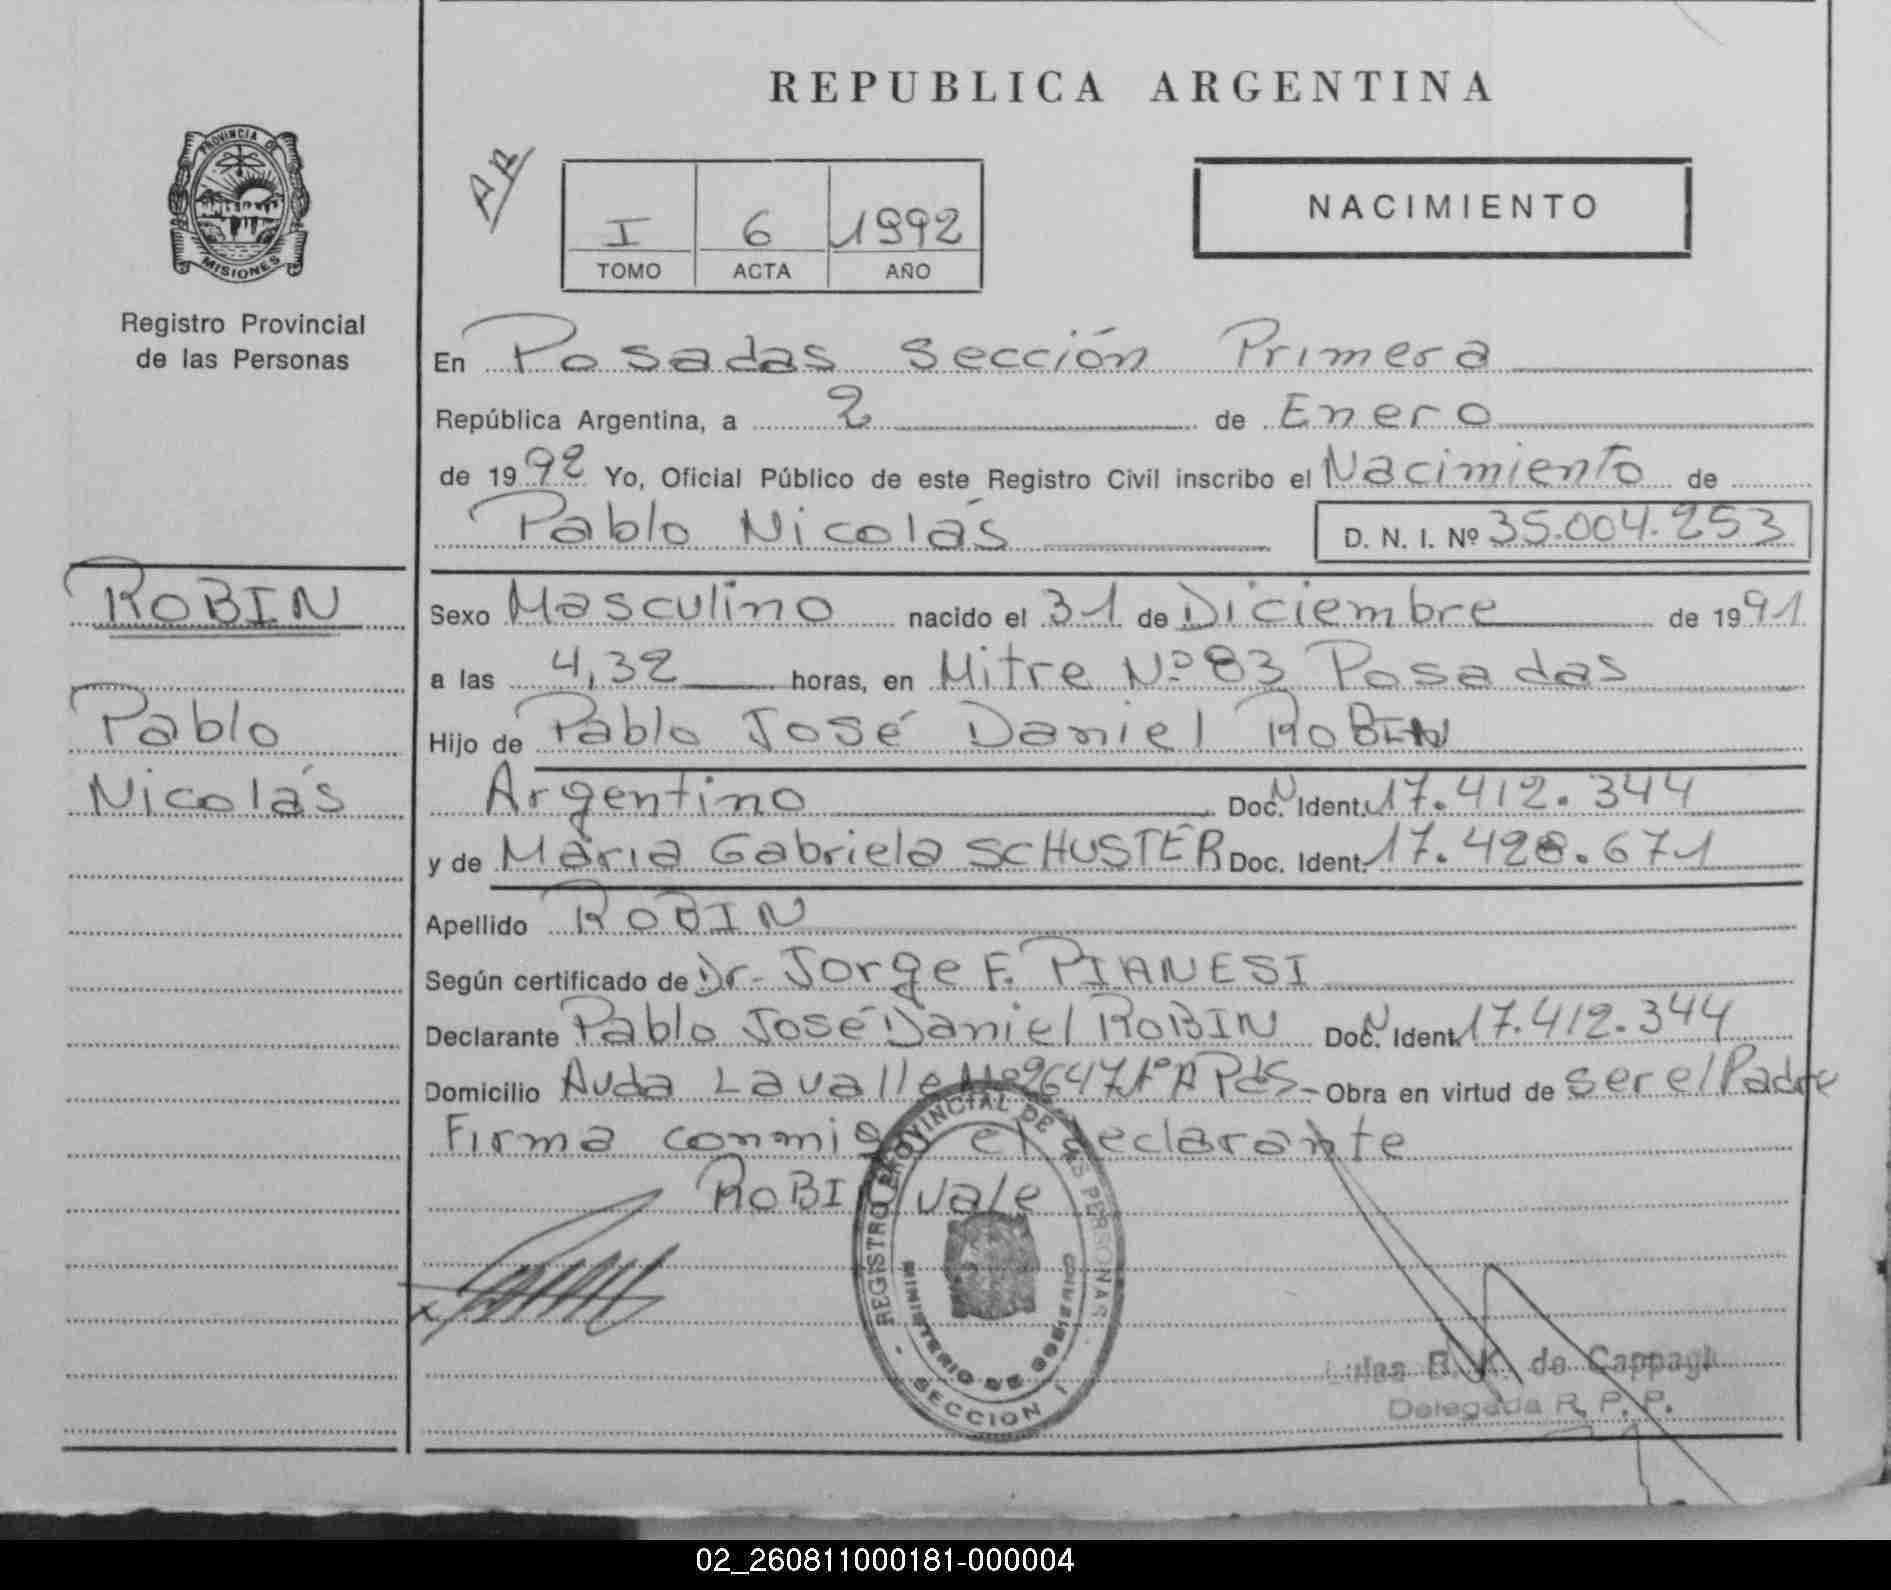 REPUBLICA ARGENTINA
PROVINCIA DE
MISIONES
Registro Provincial
de las Personas
AR
I 6 1992
TOMO ACTA AÑO
NACIMIENTO
En Posadas Sección Primera
República Argentina, a 2 de Enero
de 1992 Yo, Oficial Público de este Registro Civil inscribo el Nacimiento de
Pablo Nicolás D. N. I. Nº 35.004.253
ROBIN
Pablo
Nicolás
Sexo Masculino nacido el 31 de Diciembre de 1991
a las 4,32 horas, en Mitre Nº 83 Posadas
Hijo de Pablo José Daniel ROBIN
Argentino Doc. Ident. 17.412.344
y de María Gabriela SCHUSTER Doc. Ident. 17.428.671
Apellido ROBIN
Según certificado de Dr. Jorge F. PIANESI
Declarante Pablo José Daniel ROBIN Doc. Ident. 17.412.344
Domicilio Avda Lavalle Nº 2647 1º A Pdas - Obra en virtud de ser el Padre
Firma conmigo el declarante
ROBIN vale
REGISTRO PROVINCIAL DE LAS PERSONAS
MINISTERIO DE GOBIERNO
- SECCION I -
x
Luisa B. K. de Cappagli
Delegada R. P. P.
02_260811000181-000004